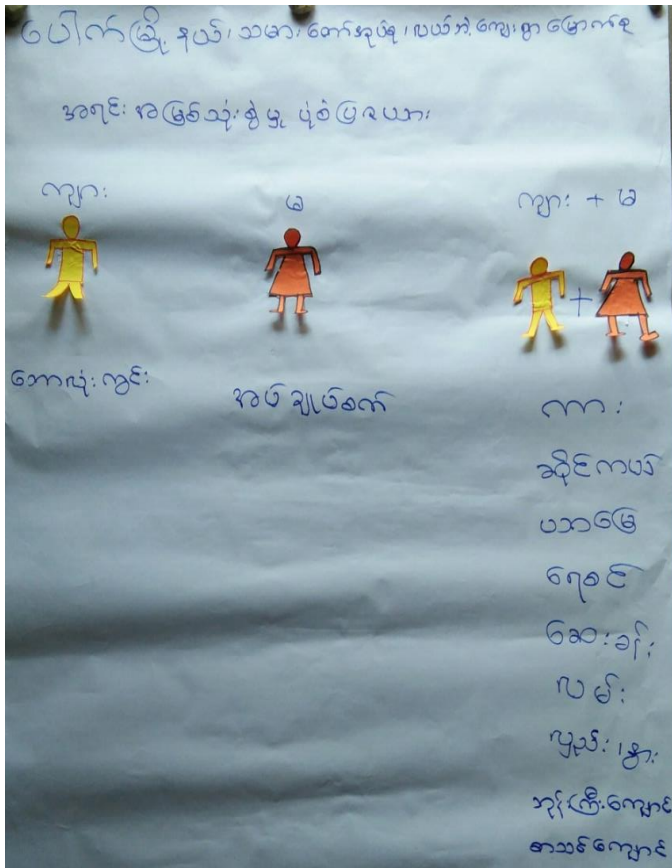 ပေါက်မြို့နယ်၊ သမားတော်အုပ်စု၊ လယ်ဘဲကျေးရွာ မြောက်စု
အရင်းအမြစ်သုံးစွဲမှု ပုံစံပြဇယား
ကျား
မ
ကျား + မ
+
ဘောလုံးကွင်း
အပ်ချုပ်စက်
ကား
ဆိုင်ကယ်
ယာမြေ
ရေစင်
ဆေးခန်း
လမ်း
လှည်း၊ နွား
ဘုန်းကြီးကျောင်း
စာသင်ကျောင်း